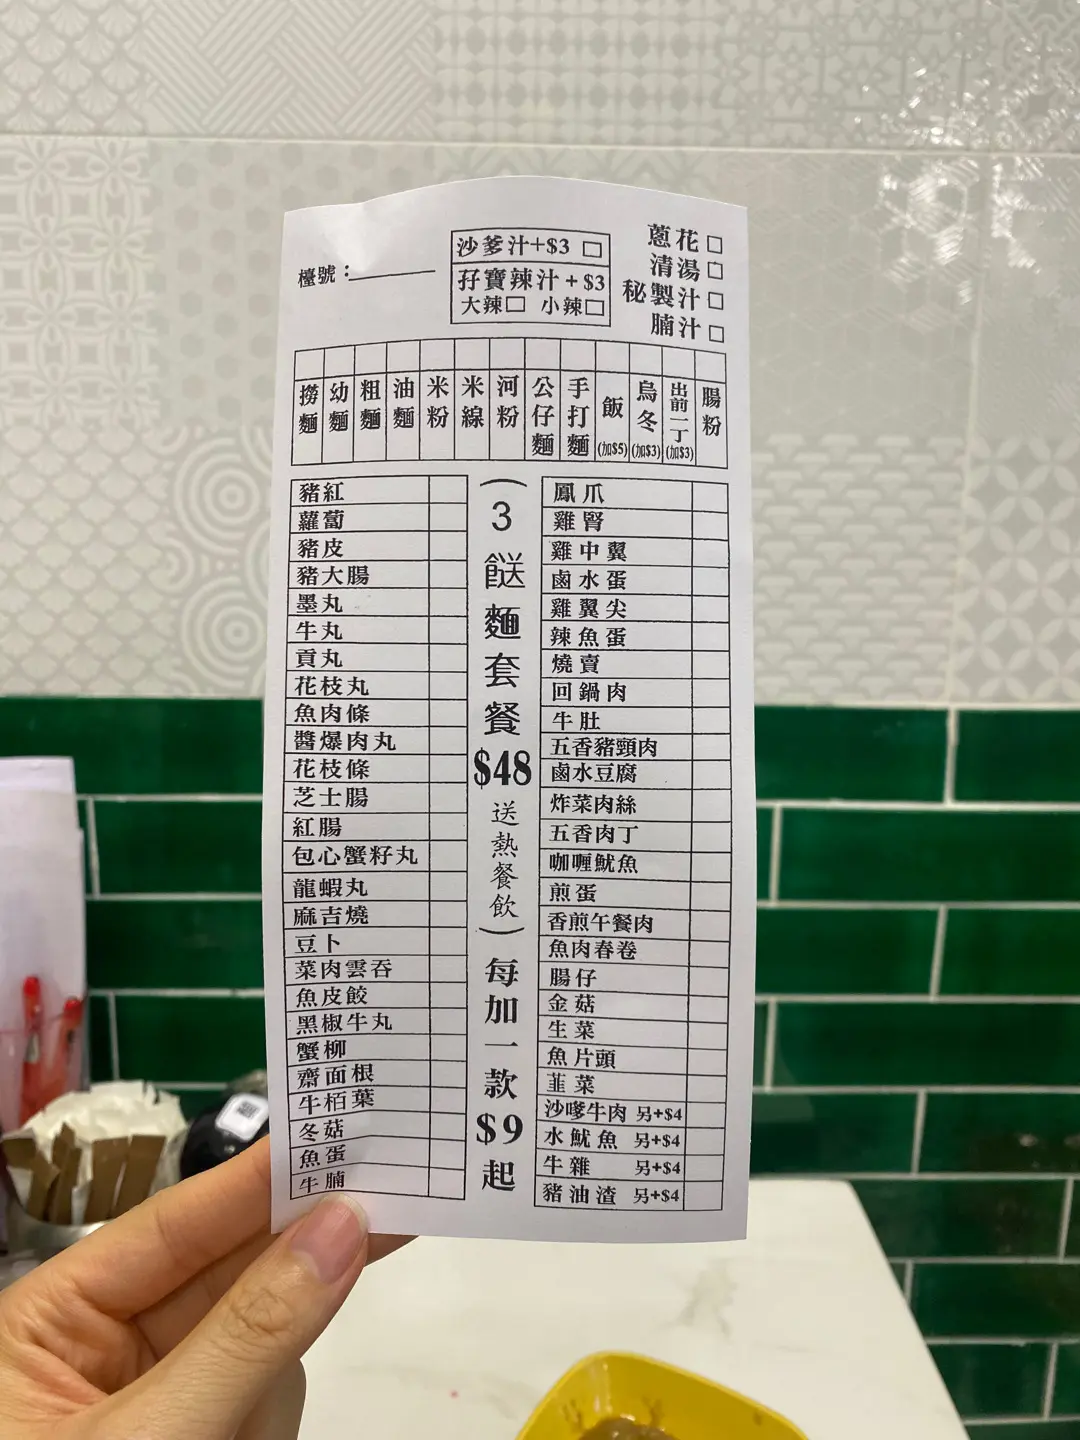 檯號：
沙爹汁+$3 □
孖寶辣汁+$3
大辣□ 小辣□
蔥花□
清湯□
秘製汁□
腩汁□
撈麵
幼麵
粗麵
油麵
米粉
米線
河粉
公仔麵
手打麵
飯(加$5)
烏冬(加$3)
出前一丁(加$3)
腸粉
豬紅
蘿蔔
豬皮
豬大腸
墨丸
牛丸
貢丸
花枝丸
魚肉條
醬爆肉丸
花枝條
芝士腸
紅腸
包心蟹籽丸
龍蝦丸
麻吉燒
豆卜
菜肉雲吞
魚皮餃
黑椒牛丸
蟹柳
齋面根
牛栢葉
冬菇
魚蛋
牛腩
（3餸麵套餐$48送熱餐飲）每加一款$9起
鳳爪
雞腎
雞中翼
鹵水蛋
雞翼尖
辣魚蛋
燒賣
回鍋肉
牛肚
五香豬頸肉
鹵水豆腐
炸菜肉絲
五香肉丁
咖喱魷魚
煎蛋
香煎午餐肉
魚肉春卷
腸仔
金菇
生菜
魚片頭
韮菜
沙嗲牛肉 另+$4
水魷魚 另+$4
牛雜 另+$4
豬油渣 另+$4